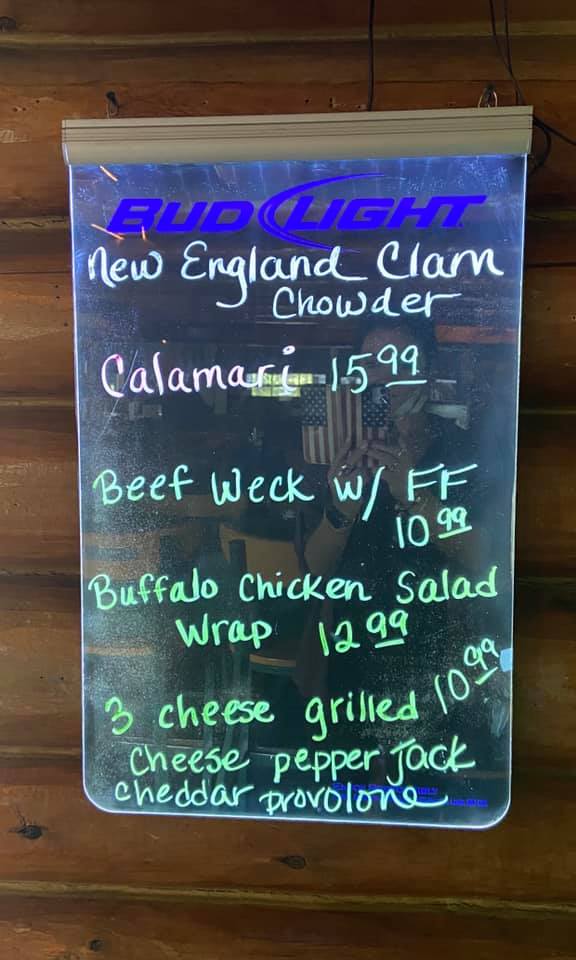 BUD LIGHT
New England Clam
Chowder
Calamari 15 99
Beef Weck w/ FF
10 99
Buffalo Chicken Salad
Wrap 12 99
3 cheese grilled 10 99
Cheese pepper Jack
Cheddar provolone